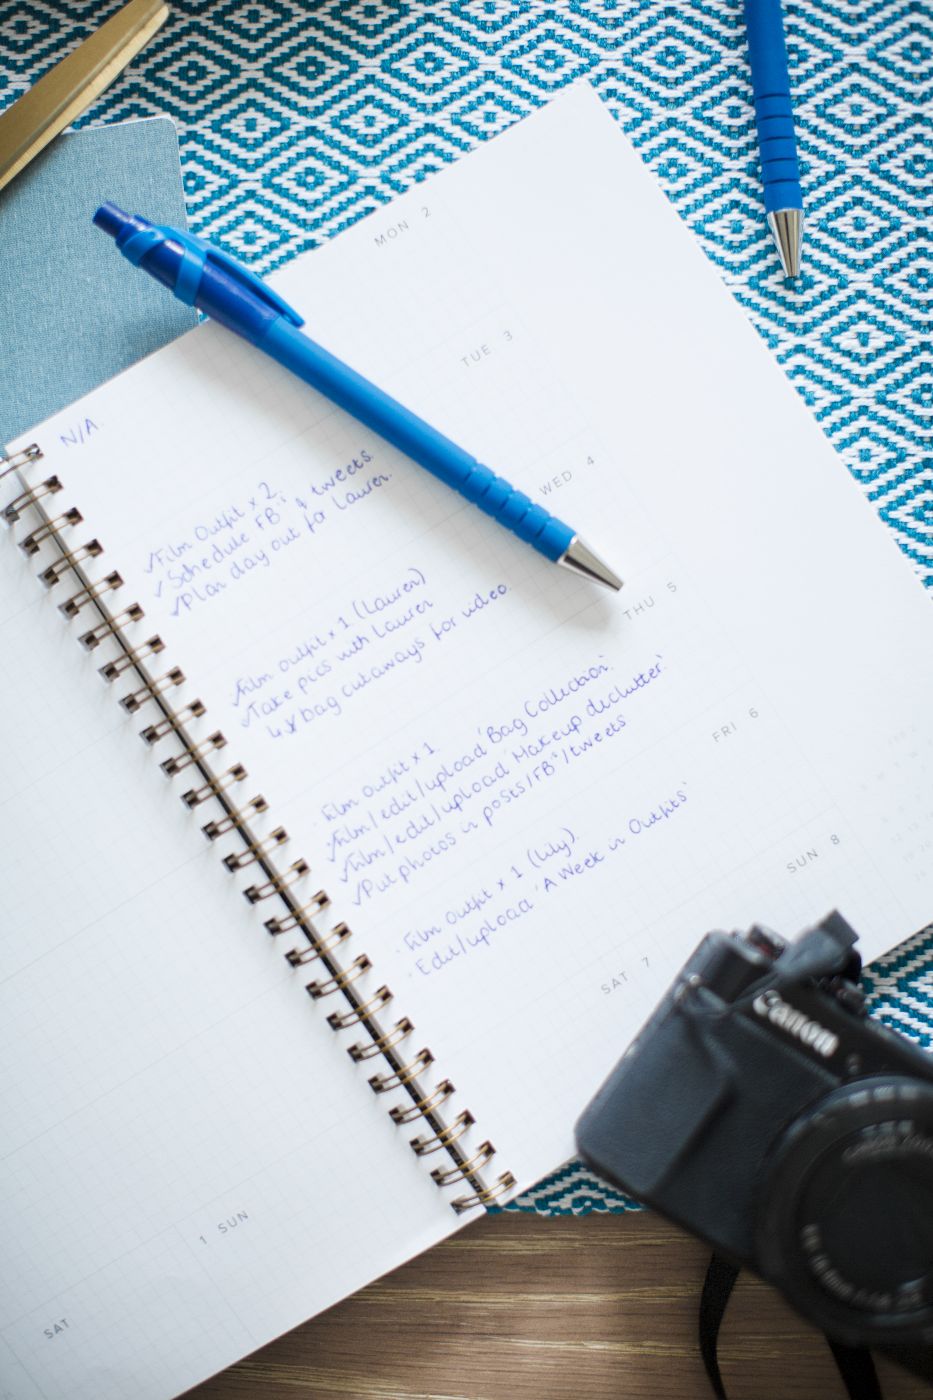 MON 2
N/A.
TUE 3
✓Film Outfit x 2.
✓Schedule FB's & tweets.
✓Plan day out for Lauren.
WED 4
✓Film outfit x 1 (Lauren)
✓Take pics with Lauren
bag cutaways for video.
THU 5
· Film outfit x 1
✓Film/edit/upload 'Bag Collection'.
✓Film/edit/upload 'Makeup declutter'.
✓Put photos in posts/FB's/tweets
FRI 6
· Film outfit x 1 (Lily).
· Edit/upload 'A Week in Outfits'
SAT 7
SUN 8
1 SUN
SAT
Canon